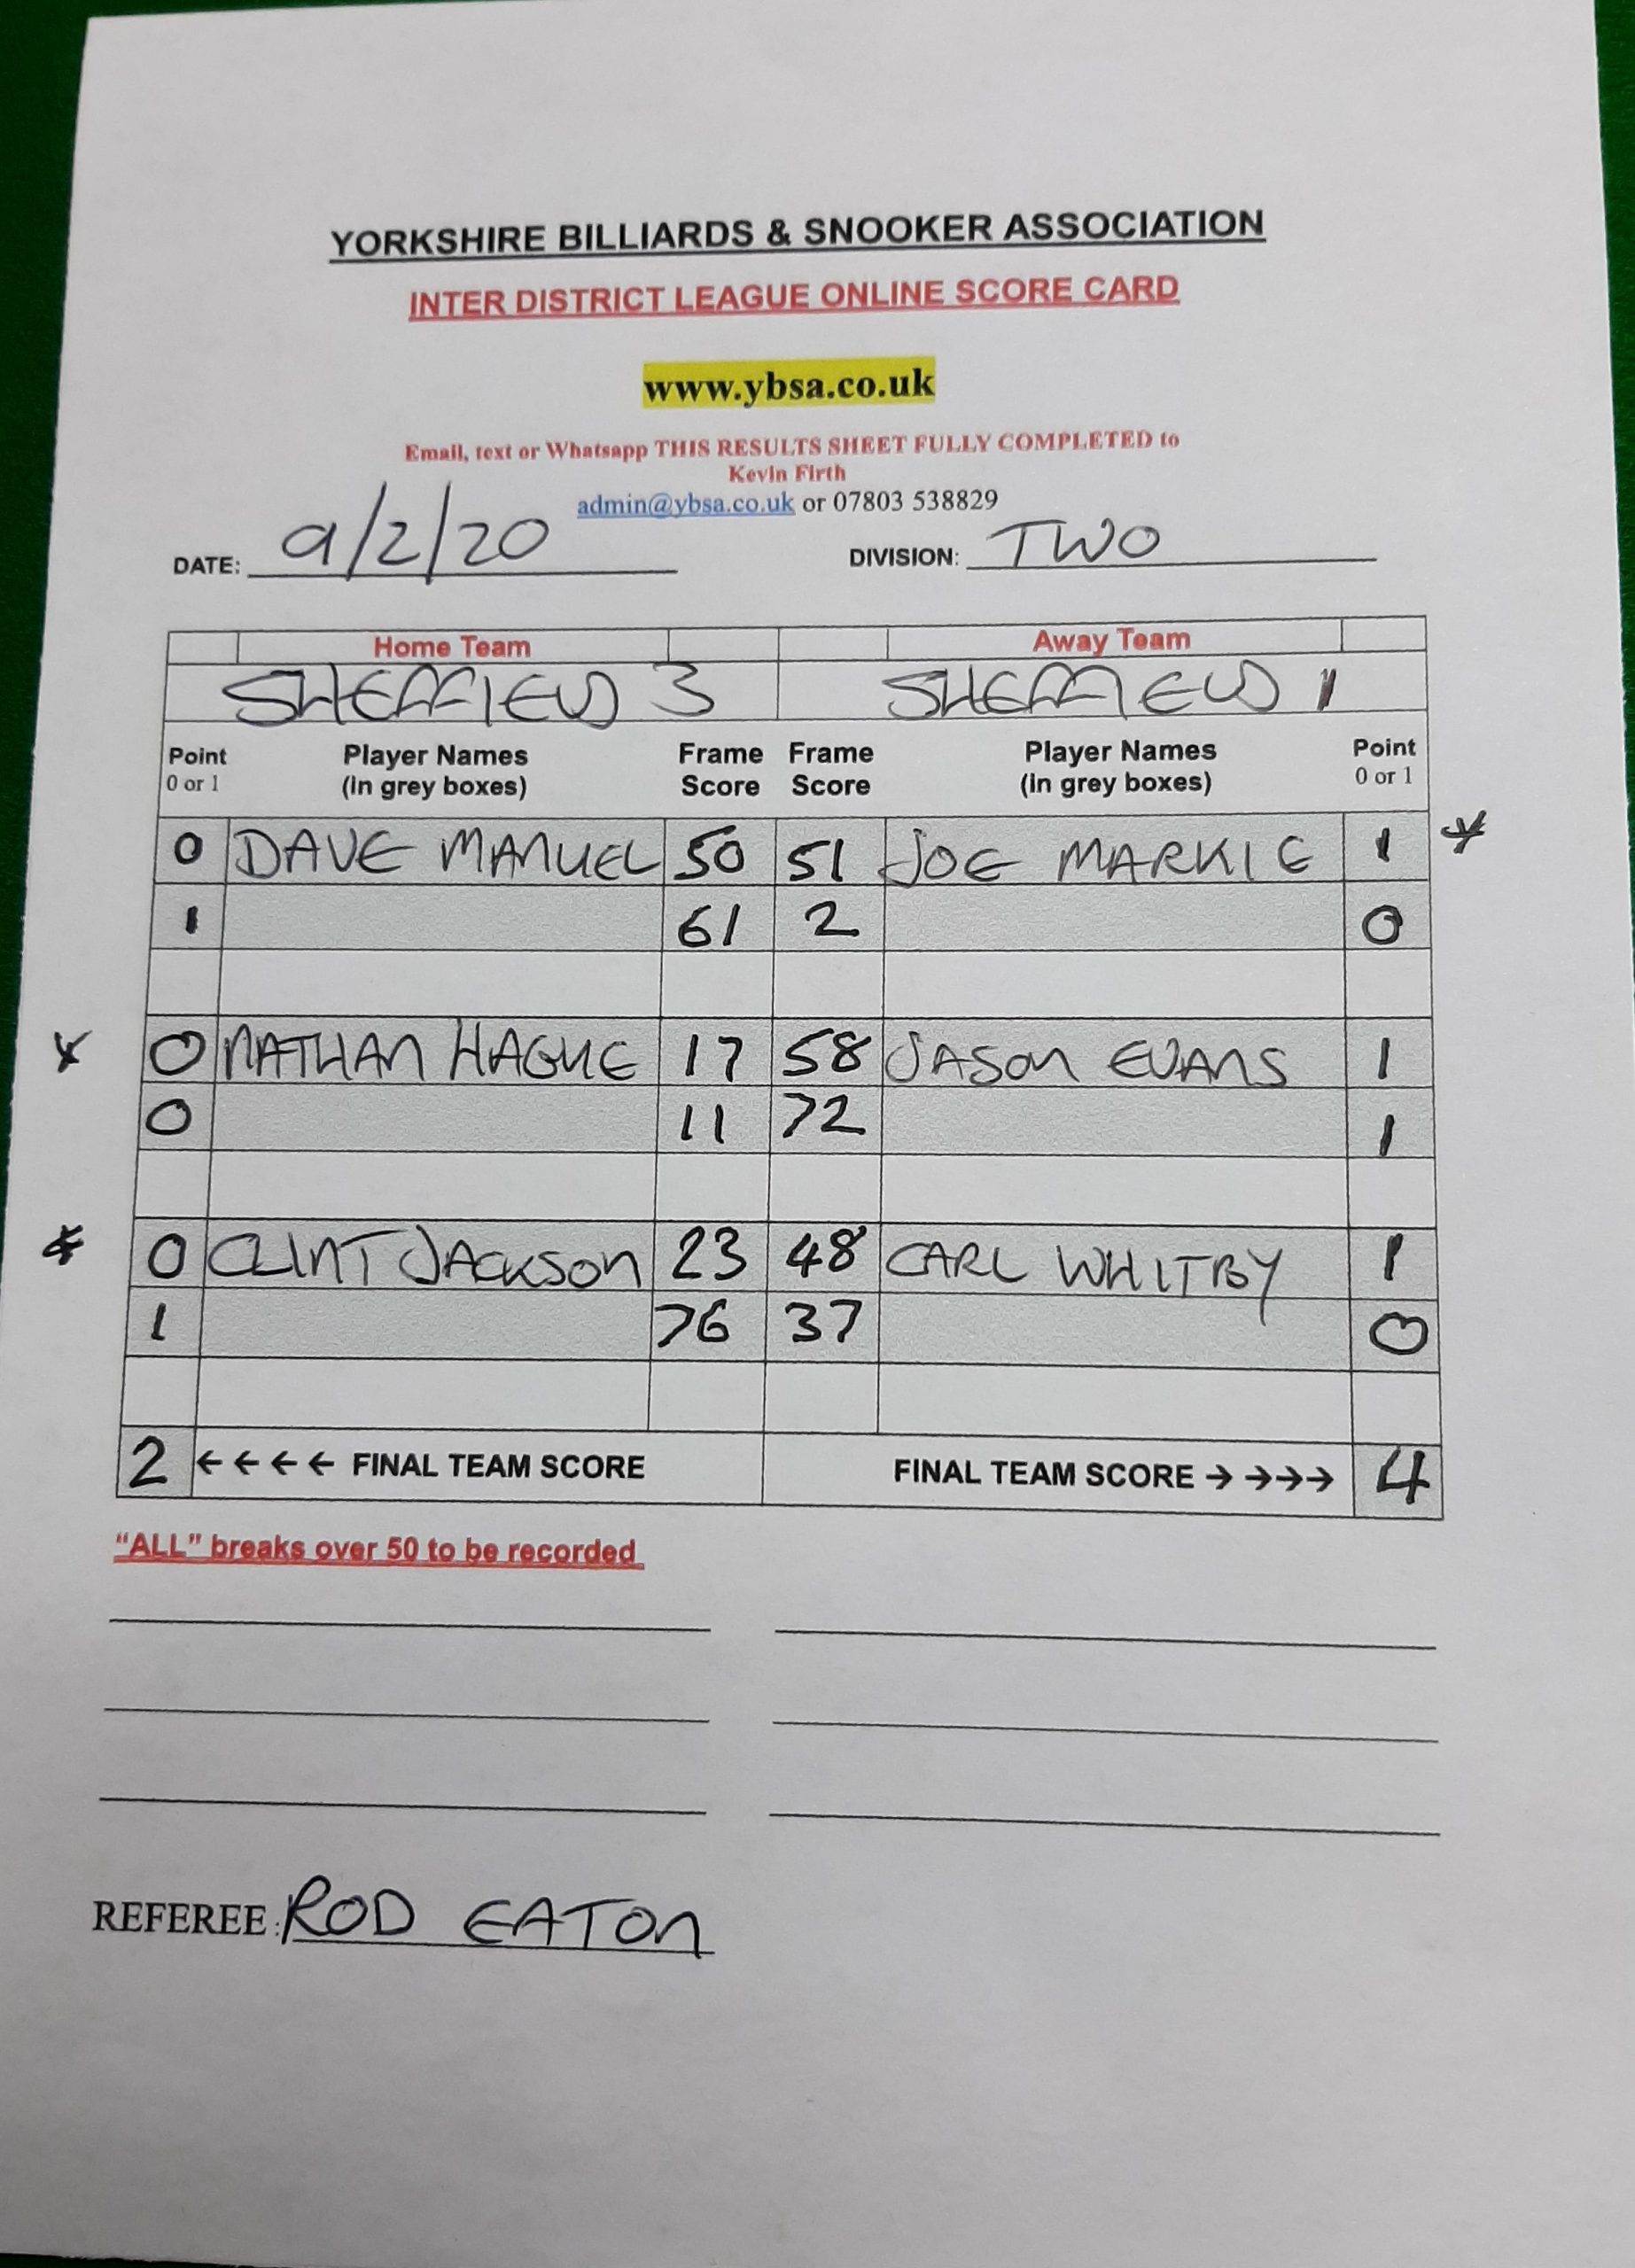 YORKSHIRE BILLIARDS & SNOOKER ASSOCIATION
INTER DISTRICT LEAGUE ONLINE SCORE CARD
www.ybsa.co.uk
Email, text or Whatsapp THIS RESULTS SHEET FULLY COMPLETED to
Kevin Firth
admin@ybsa.co.uk or 07803 538829
DATE: 9/2/20 DIVISION: TWO
Home Team Away Team
SHEFFIELD 3 SHEFFIELD 1
Point Player Names Frame Frame Player Names Point
0 or 1 (in grey boxes) Score Score (in grey boxes) 0 or 1
0 DAVE MANUEL 50 51 JOE MARKIE 1 *
1 61 2 0
* 0 NATHAN HAGUE 17 58 JASON EVANS 1
0 11 72 1
* 0 CLINT JACKSON 23 48 CARL WHITBY 1
1 76 37 0
2 ←←←← FINAL TEAM SCORE FINAL TEAM SCORE →→→→ 4
“ALL” breaks over 50 to be recorded
REFEREE: ROD EATON